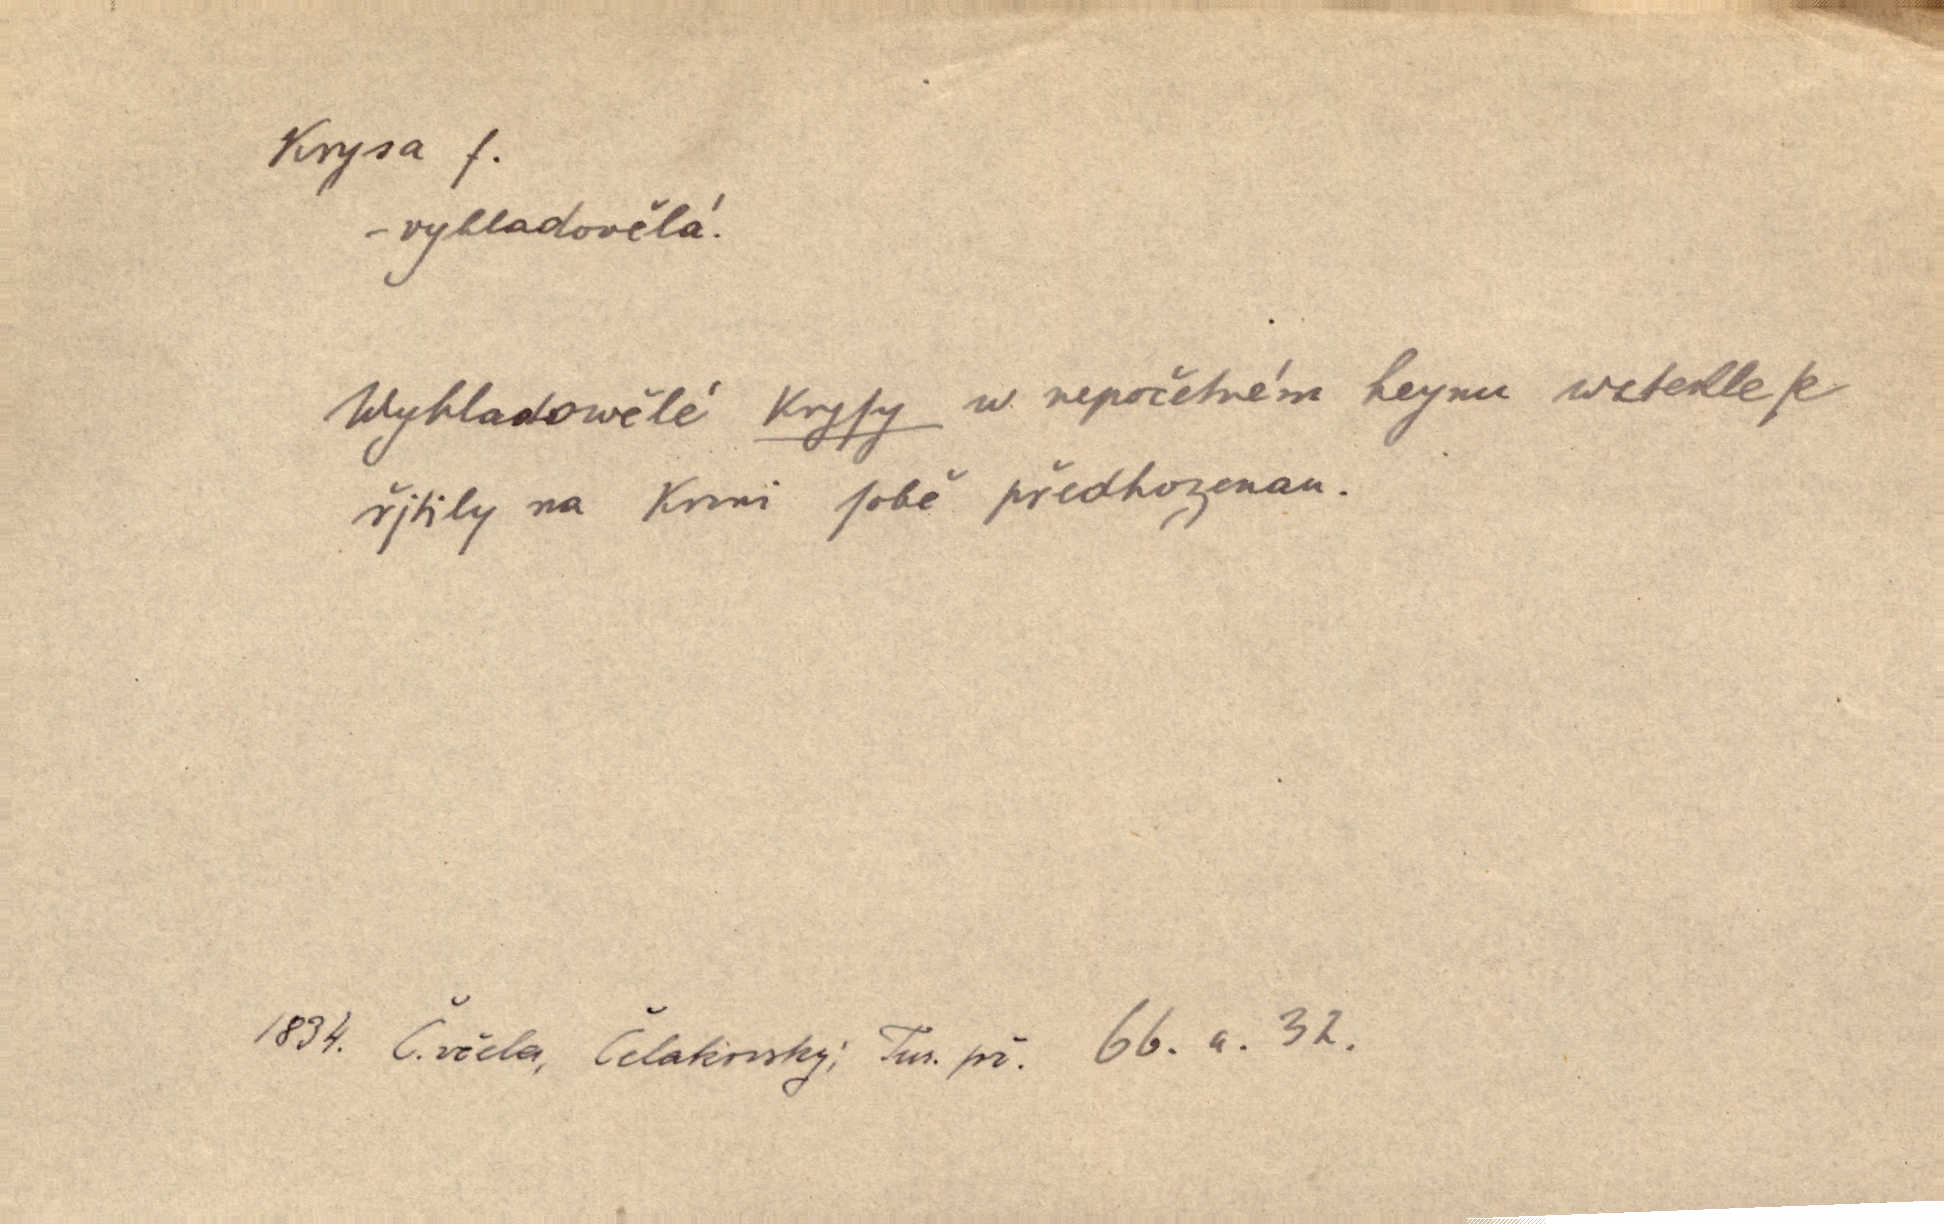 Krysa f.
- vyhladovělá.
Wyhladowělé kryſy w nepočetném heynu wztekle ſe
řjtily na krmi ſobě předhozenau.
1834. Č. včela, Čelakovský; Tur. př. 66. a. 32.